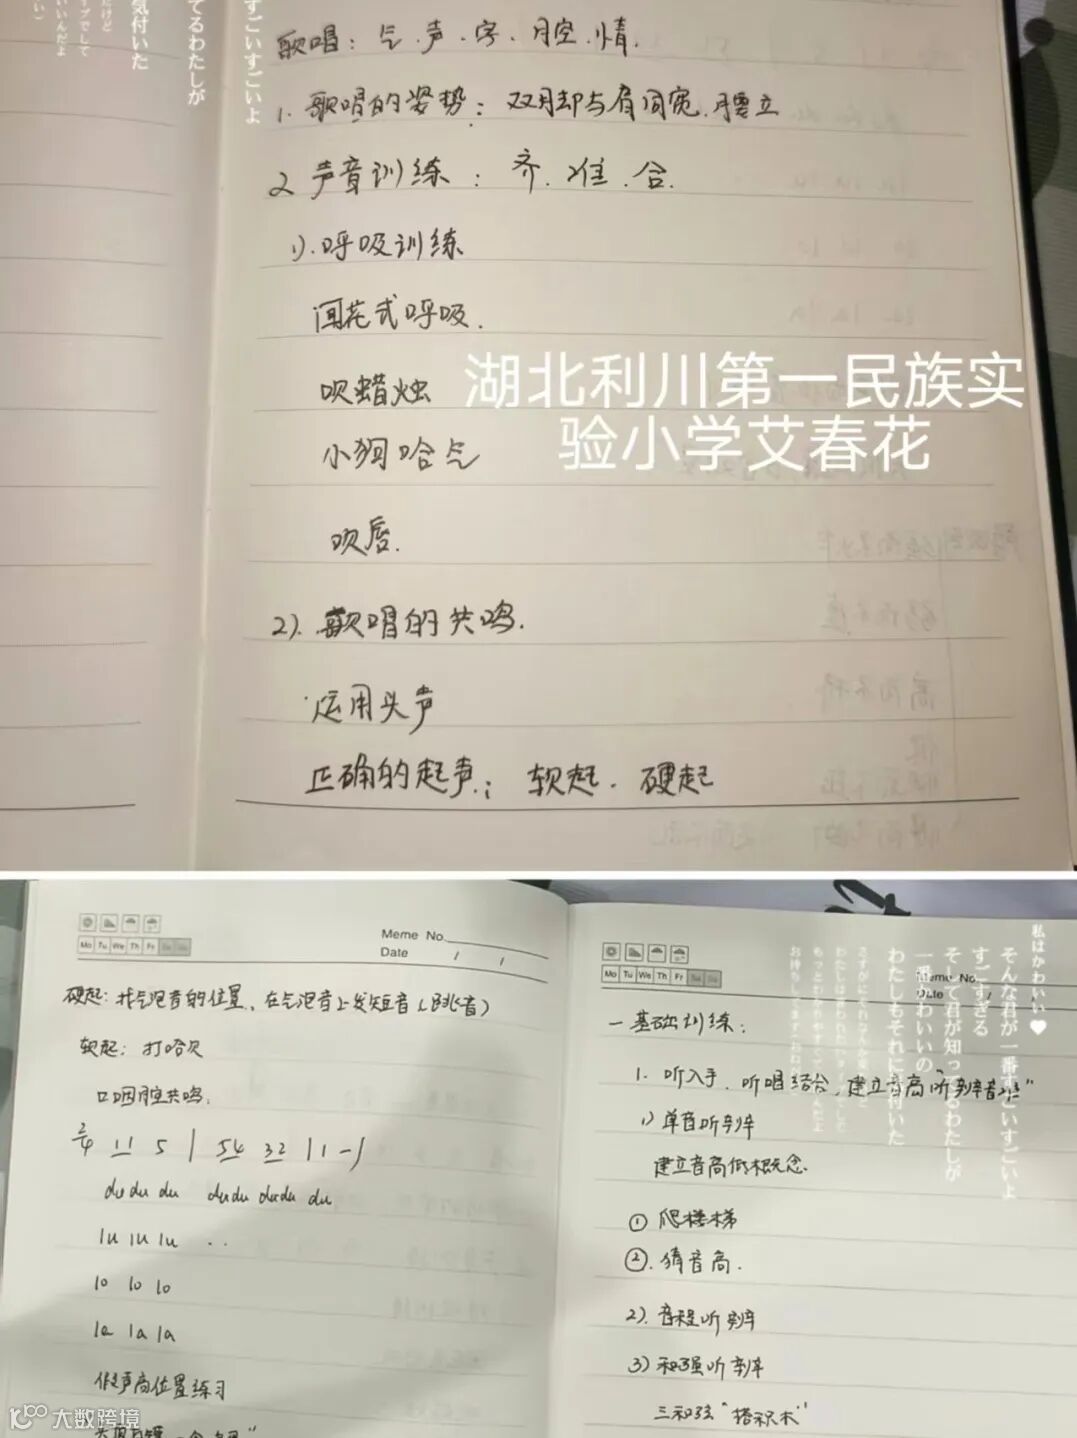 歌唱：气、声、字、腔、情.
1. 歌唱的姿势：双脚与肩同宽、腰立
2 声音训练：齐、准、合.
1).呼吸训练
闻花式呼吸.
吹蜡烛
小狗哈气
吹唇.
2).歌唱的共鸣.
运用头声
正确的起声：软起、硬起
湖北利川第一民族实
验小学艾春花
すごいすごいよ
てるわたしが
気付いた
Meme No.
Date / /
Mo Tu We Th Fr Sa Su
硬起：找气泡音的位置，在气泡音上发短音(跳音)
软起：打哈欠
口咽腔共鸣.
2/4 11 5 | 54 32 | 1 - |
du du du du du du du du
lu lu lu . .
lo lo lo
la la la
假声高位置练习
Meme No.
Date / /
Mo Tu We Th Fr Sa Su
一 基础训练：
1. 听入手，听唱结合，建立音高"听辨音准"
1) 单音听辨
建立音高低概念.
① 爬楼梯
②. 猜音高.
2). 音程听辨
3) 和弦听辨
三和弦"搭积木"
私はかわいい♥
そんな君が一番すごいすごいよ
すごすぎる
そして君が知ってるわたしが
一番かわいいの
わたしもそれに気付いた
大数跨境